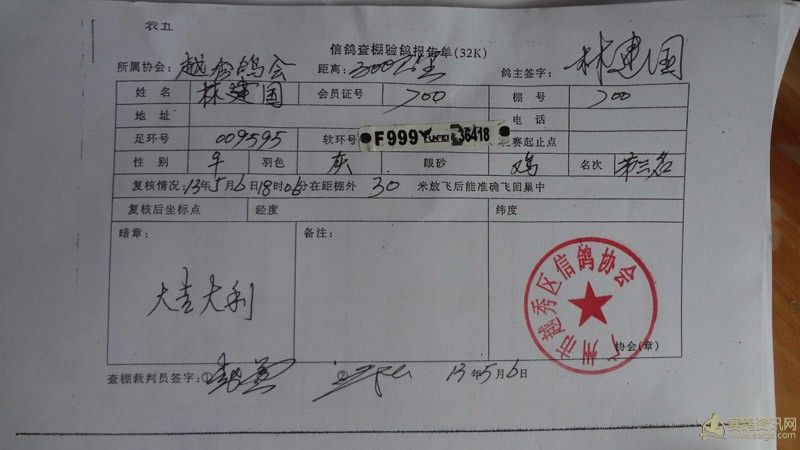 表五
信鸽查棚验鸽报告单(32K)
所属协会: 越秀鸽会 距离: 300公里 鸽主签字: 林建国
姓名 林建国 会员证号 700 棚号 700
地址 电话
足环号 009595 软环号 F999 36418 竞赛起止点
性别 羽色 灰 眼砂 鸡 名次 第三名
复核情况: 13年5月6日18时06分在距棚外 30 米放飞后能准确飞回巢中
复核后坐标点 经度 纬度
暗章: 备注:
大吉大利
广州市越秀区信鸽协会
协会(章)
查棚裁判员签字: ① ② 13年5月6日
赛鸽资讯网
www.saige.com